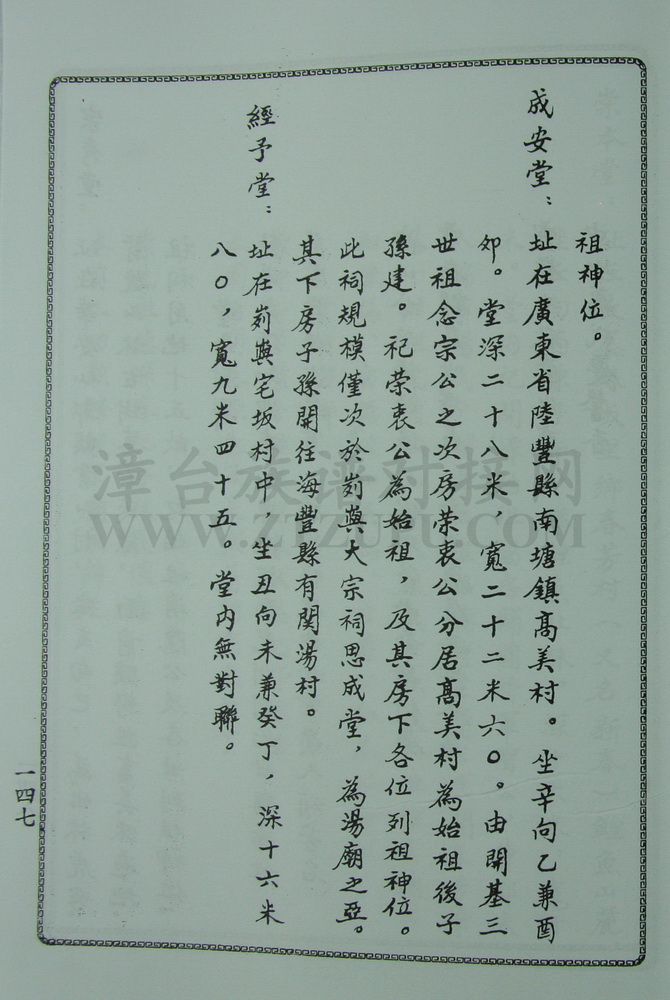 祖神位。
成安堂：址在廣東省陸豐縣南塘鎮高美村。坐辛向乙兼酉
卯。堂深二十八米，寬二十二米六〇。由開基三
世祖念宗公之次房荣衷公分居高美村為始祖後子
孫建。祀荣衷公為始祖，及其房下各位列祖神位。
此祠規模僅次於剡與大宗祠思成堂，為湯廟之亞。
其下房子孫開往海豐縣有関湯村。
經予堂：址在剡與宅坂村中，坐丑向未兼癸丁，深十六米
八〇，寬九米四十五。堂内無對聯。
一四七
漳台族谱对接网
WWW.ZTZUPU.COM